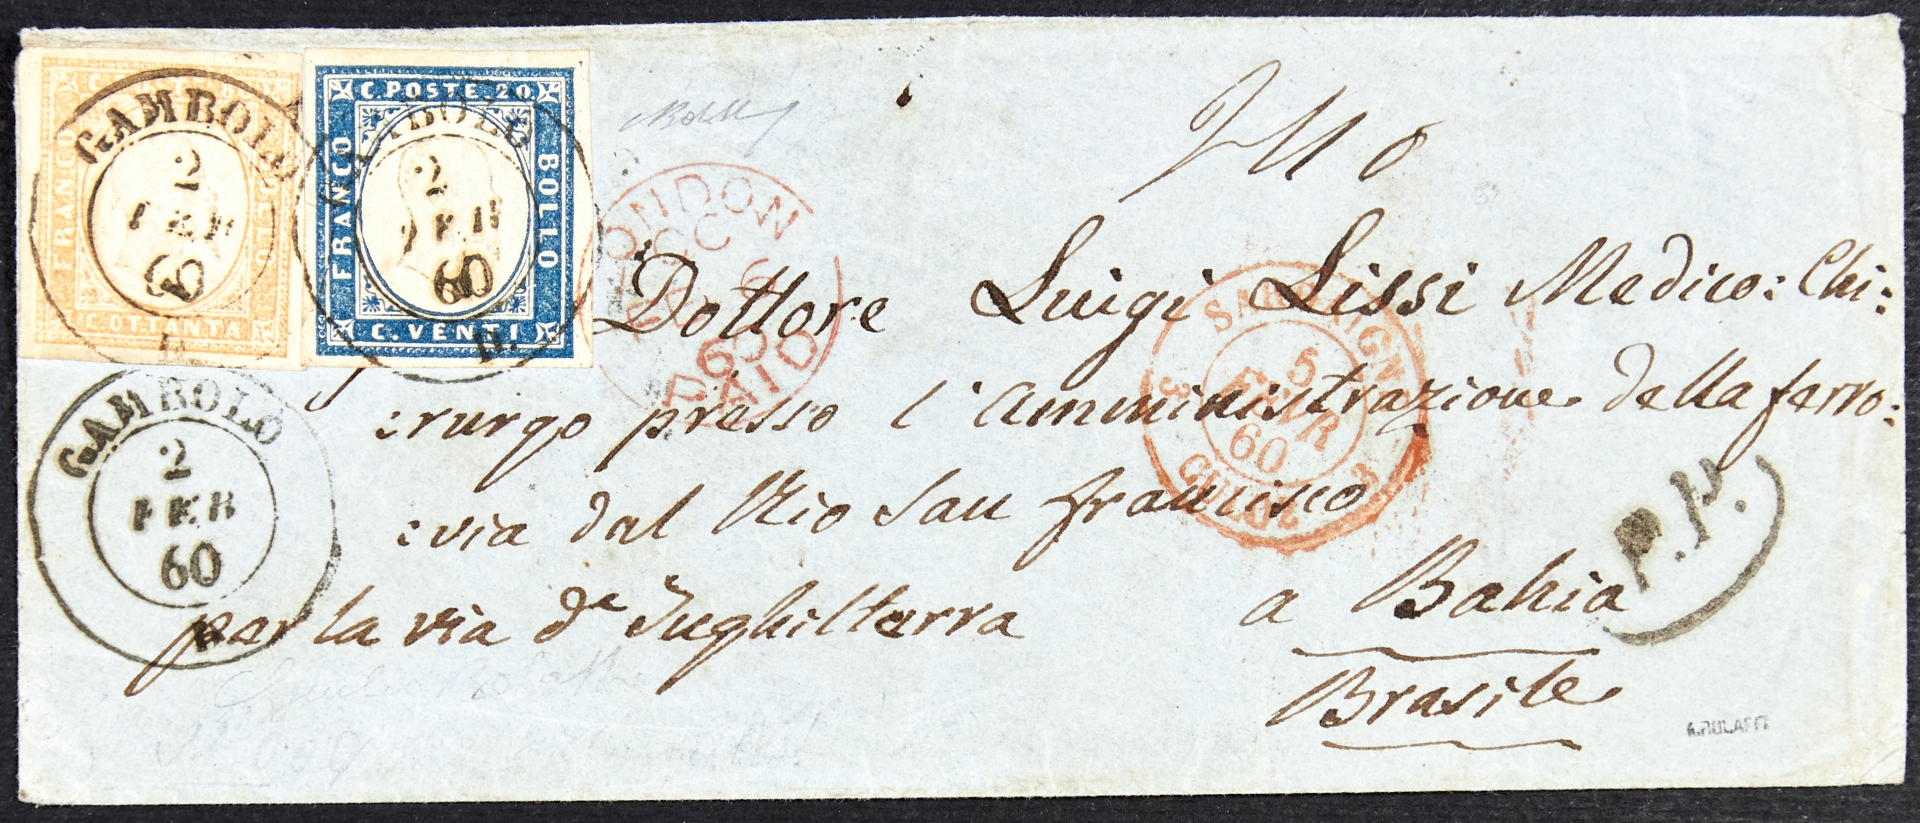 C. OTTANTA
FRANCO
BOLLO
GAMBOLO
2
FEB
60
D.
C. POSTE. 20.
FRANCO
BOLLO
C. VENTI
GAMBOLO
2
FEB
60
D.
LONDON
60
PAID
Illo
Dottore Luigi Lissi Medico: Chi:
:rurgo presso l'amministrazione della ferro:
:via dal Rio San Francisco
a Bahia
Brasile
per la via d'Inghilterra
GAMBOLO
2
FEB
60
SARDAIGNE
5
FEVR
60
CULOZ
3
P.P.